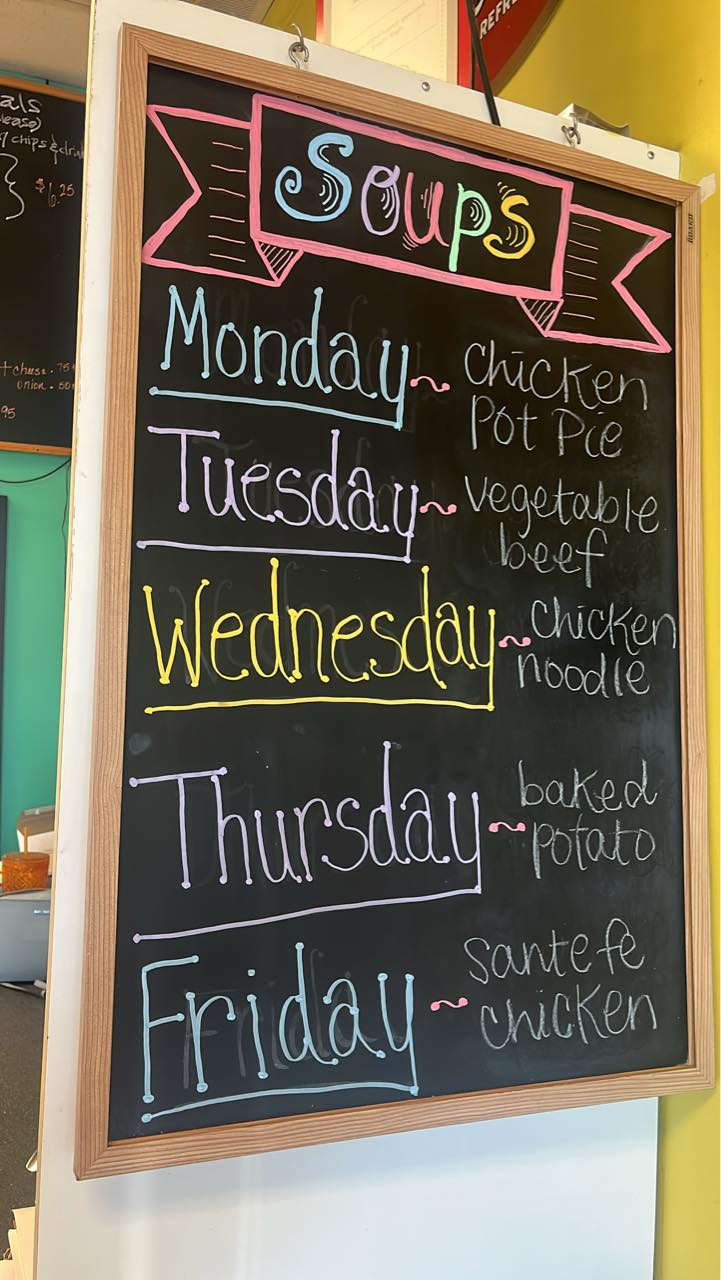 REFRE
als
lease)
/ chips & drin
$6.25
+ cheese . 75¢
onion . 50
95
BOARD
Soups
Monday ~ chicken
Pot Pie
Tuesday ~ vegetable
beef
Wednesday ~ chicken
noodle
Thursday ~ baked
potato
Friday ~ santefe
chicken